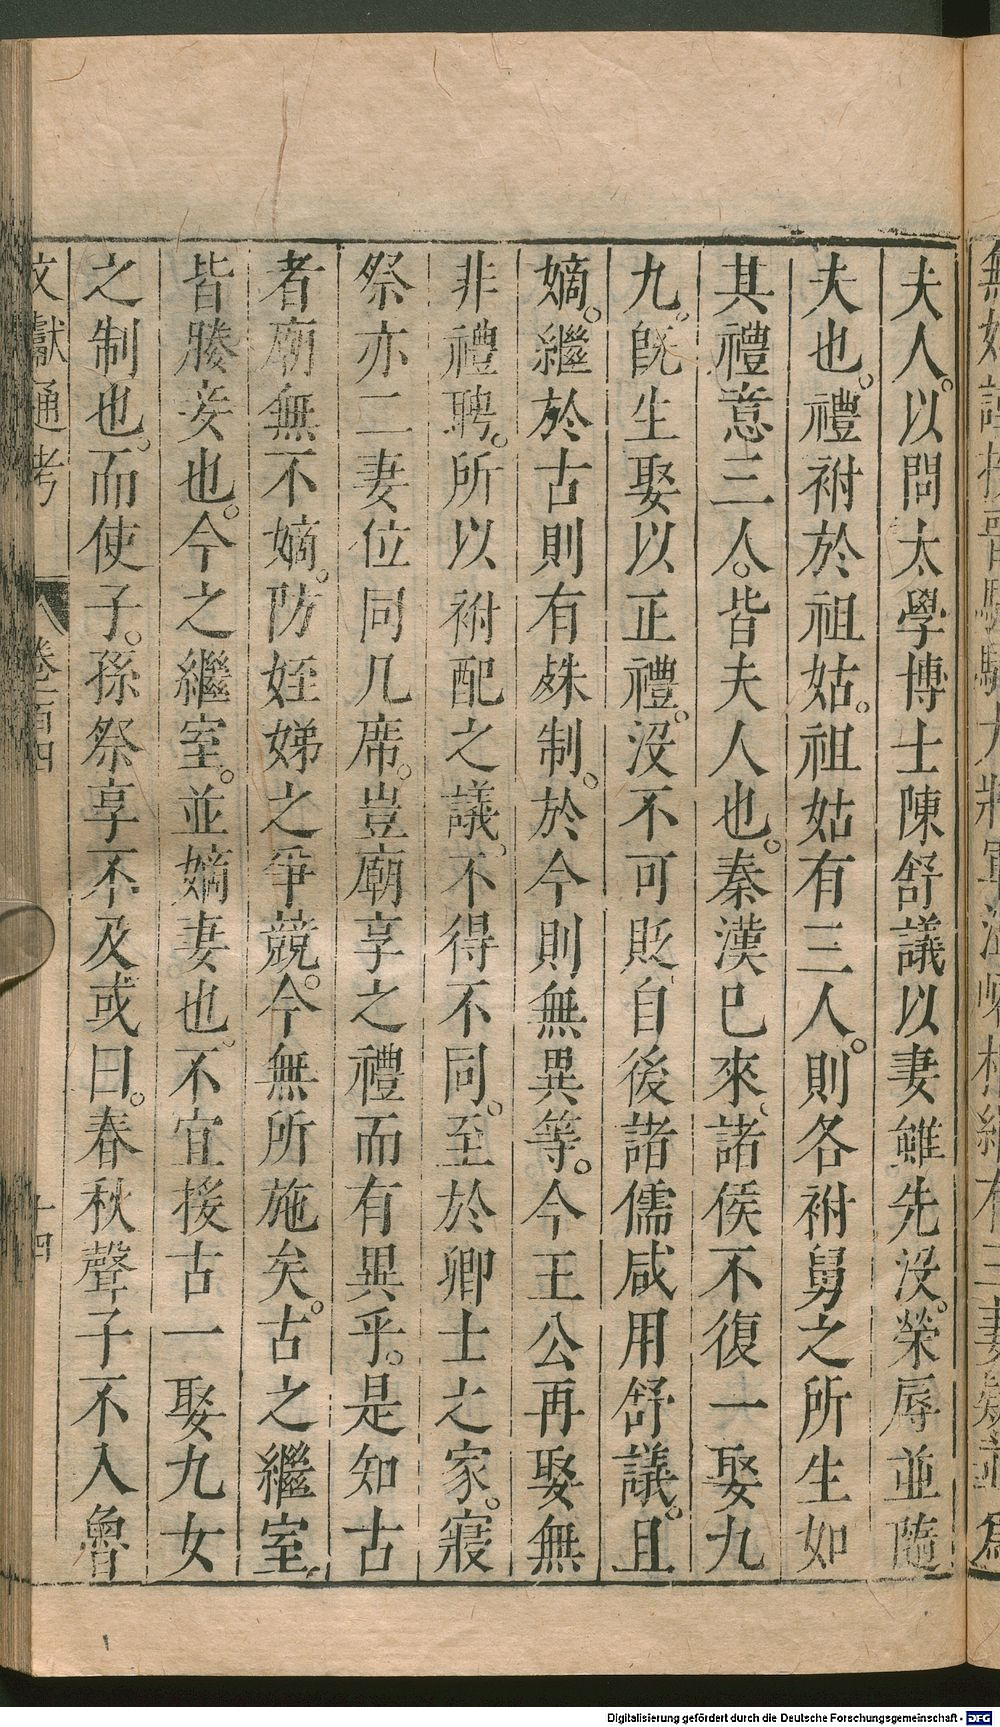 夫人。以問太學博士陳舒議以妻雖先沒。榮辱並隨
夫也。禮祔於祖姑。祖姑有三人。則各祔舅之所生如
其禮意三人。皆夫人也。秦漢已來、諸侯不復一娶九
九。旣生娶以正禮。沒不可貶自後諸儒咸用舒議。且
嫡。繼於古則有殊制。於今則無異等。今王公再娶無
非禮聘。所以祔配之議、不得不同。至於卿士之家。寢
祭亦二妻位同几席。豈廟享之禮而有異乎。是知古
者廟無不嫡。防姪娣之爭競。今無所施矣。古之繼室。
皆媵妾也。今之繼室。並嫡妻也。不宜援古一娶九女
之制也。而使子。孫祭享不及或曰。春秋聲子不入魯
文獻通考 卷一百四 十四
Digitalisierung gefördert durch die Deutsche Forschungsgemeinschaft - DFG